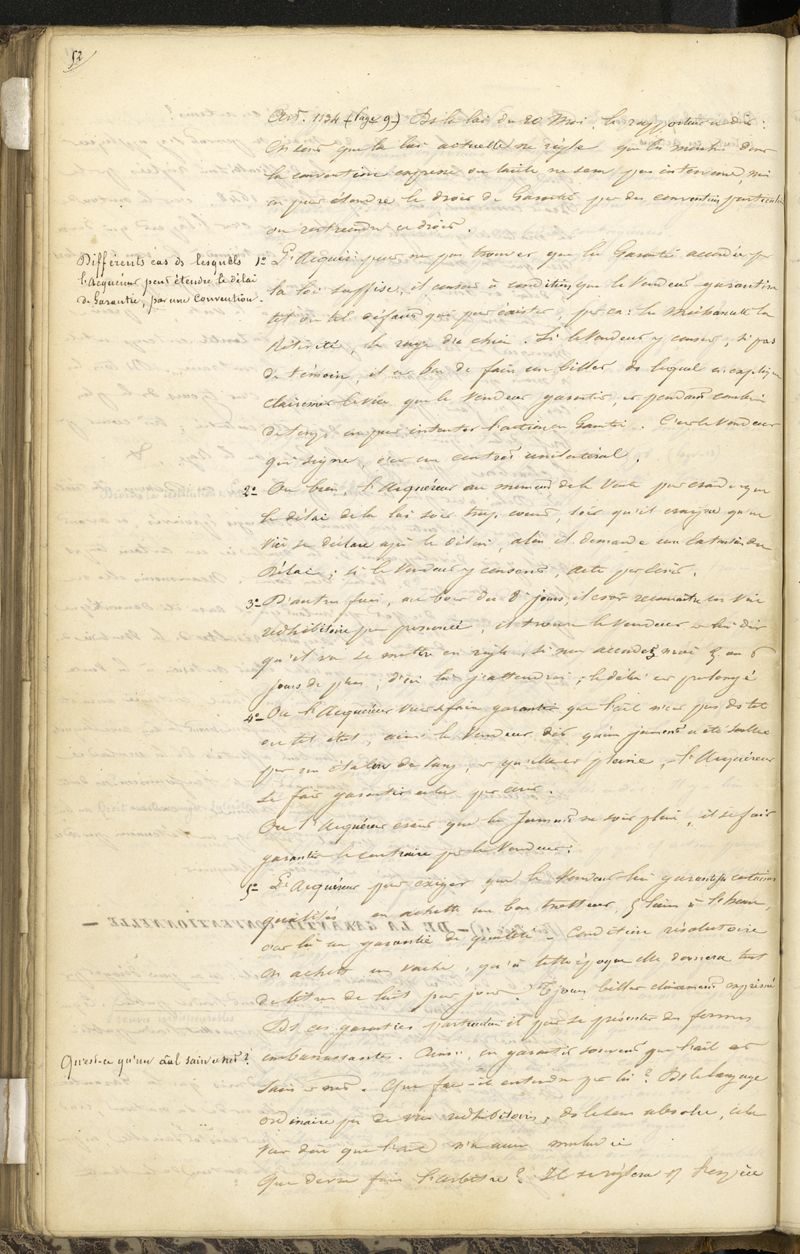 52
Art. 1134 (page 9) Ds la loi du 20 Mai, le rapporteur a dit:
On sent que la loi actuelle ne règle que les marchés dont
la convention expresse ou tacite ne sera pas intervenue, mais
on peut étendre le droit de Garantie par des conventions particulières
ou restreindre ce droit.
Différents cas ds lesquels
l'Acquéreur peut étendre le délai
de Garantie, par une Convention.
1º L'Acquéreur peut ne pas trouver que la Garantie accordée par
la loi suffise, il consent à condition que le Vendeur garantira
tel ou tel défaut qui peut exister, par ex: la méchanceté la
Rétivité, la rage du chien. Si le Vendeur y consent, si pas
de témoin, il est bon de faire un billet ds lequel on explique
clairement le vice que le Vendeur garantit, et pendant combien
de temps on peut intenter l'action en Garantie. C'est le Vendeur
qui signe, c'est un contrat unilatéral.
2º Ou bien, l'Acquéreur au moment de la Vente peut craindre que
le délai de la loi soit trop court, soit qu'il craigne qu'un
Vice se déclare après le délai, alors il demande une extension du
Délai; si le Vendeur y consent, acte par écrit.
3º D'autres fois, au bout des 8 jours, il croit reconnaître un Vice
rédhibitoire peu prononcé, il trouve le Vendeur et lui dit
qu'il va se mettre en règle, si non accordez moi 5 ou 6
jours de plus, d'ici là j'attendrai; le délai est prolongé
4º Ou l'Acquéreur veut se faire garantir que l'ãal n'est pas ds tel
ou tel état, ainsi le Vendeur dit qu'une jument a été saillie
par un étalon de sang, et qu'elle est pleine, l'Acquéreur
se fait garantir cela par écrit.
Ou l'Acquéreur craint que la Jument ne soit pleine, il se fait
garantir le contraire par le Vendeur.
5º L'Acquéreur peut exiger que le Vendeur lui garantisse certaines
qualités on achette un bon trotteur, 5 lieues à l'heure,
c'est là une garantie de qualité. Condition résolutoire
On achette une vache, qu'à telle époque elle donnera tant
de litres de lait par jour. Tjours billet clairement exprimé
Ds ces garanties particulières il peut se présenter des formes
embarrassantes. Ainsi, on garantit souvent que l'ãal est
Qu'est-ce qu'un ãal sain et net?
sain et net. Que faut-il entendre par là? Ds le langage
ordinaire pas de vices rédhibitoires, ds le sens absolu, cela
veut dire que l'ãal n'a aucune maladie
Que devra faire l'arbitre? Il se réglera